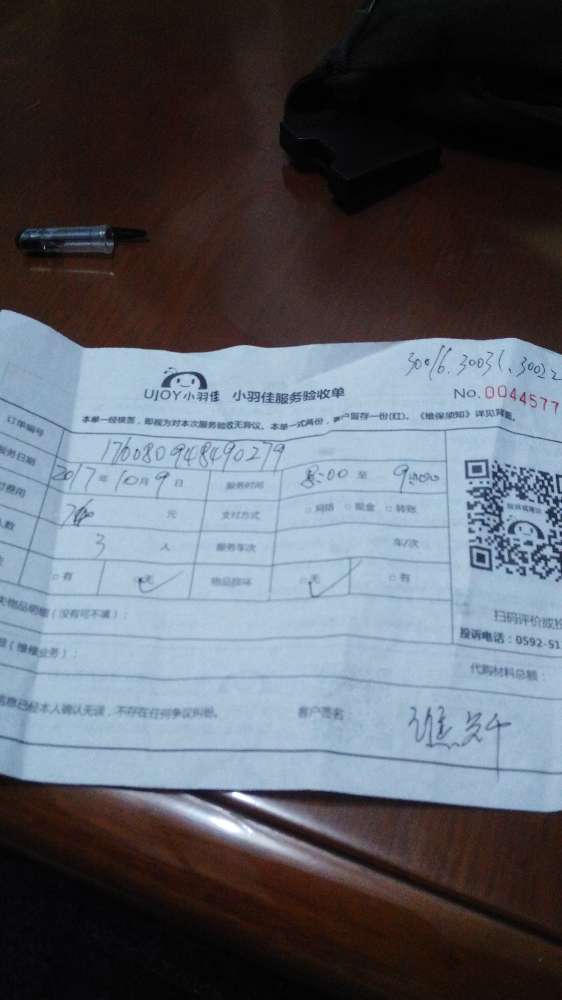 30016.30031.30022
UJOY小羽佳 小羽佳服务验收单
No.0044577
本单一经核签，即视为对本次服务验收无异议。本单一式两份，客户留存一份(红)。《维保须知》详见背面。
订单编号 176080948490279
服务日期 2017年10月9日 服务时间 8:00 至 9:00
费用 元 支付方式 □网络 □现金 □转账
人数 3 人 服务车次 车/次
□有 □无 物品损坏 □无 □有
失物品明细（没有可不填）：
扫码评价或投
投诉电话：0592-51
（维修业务）：
代购材料总额：
信息已经本人确认无误，不存在任何争议纠纷。 客户签名：